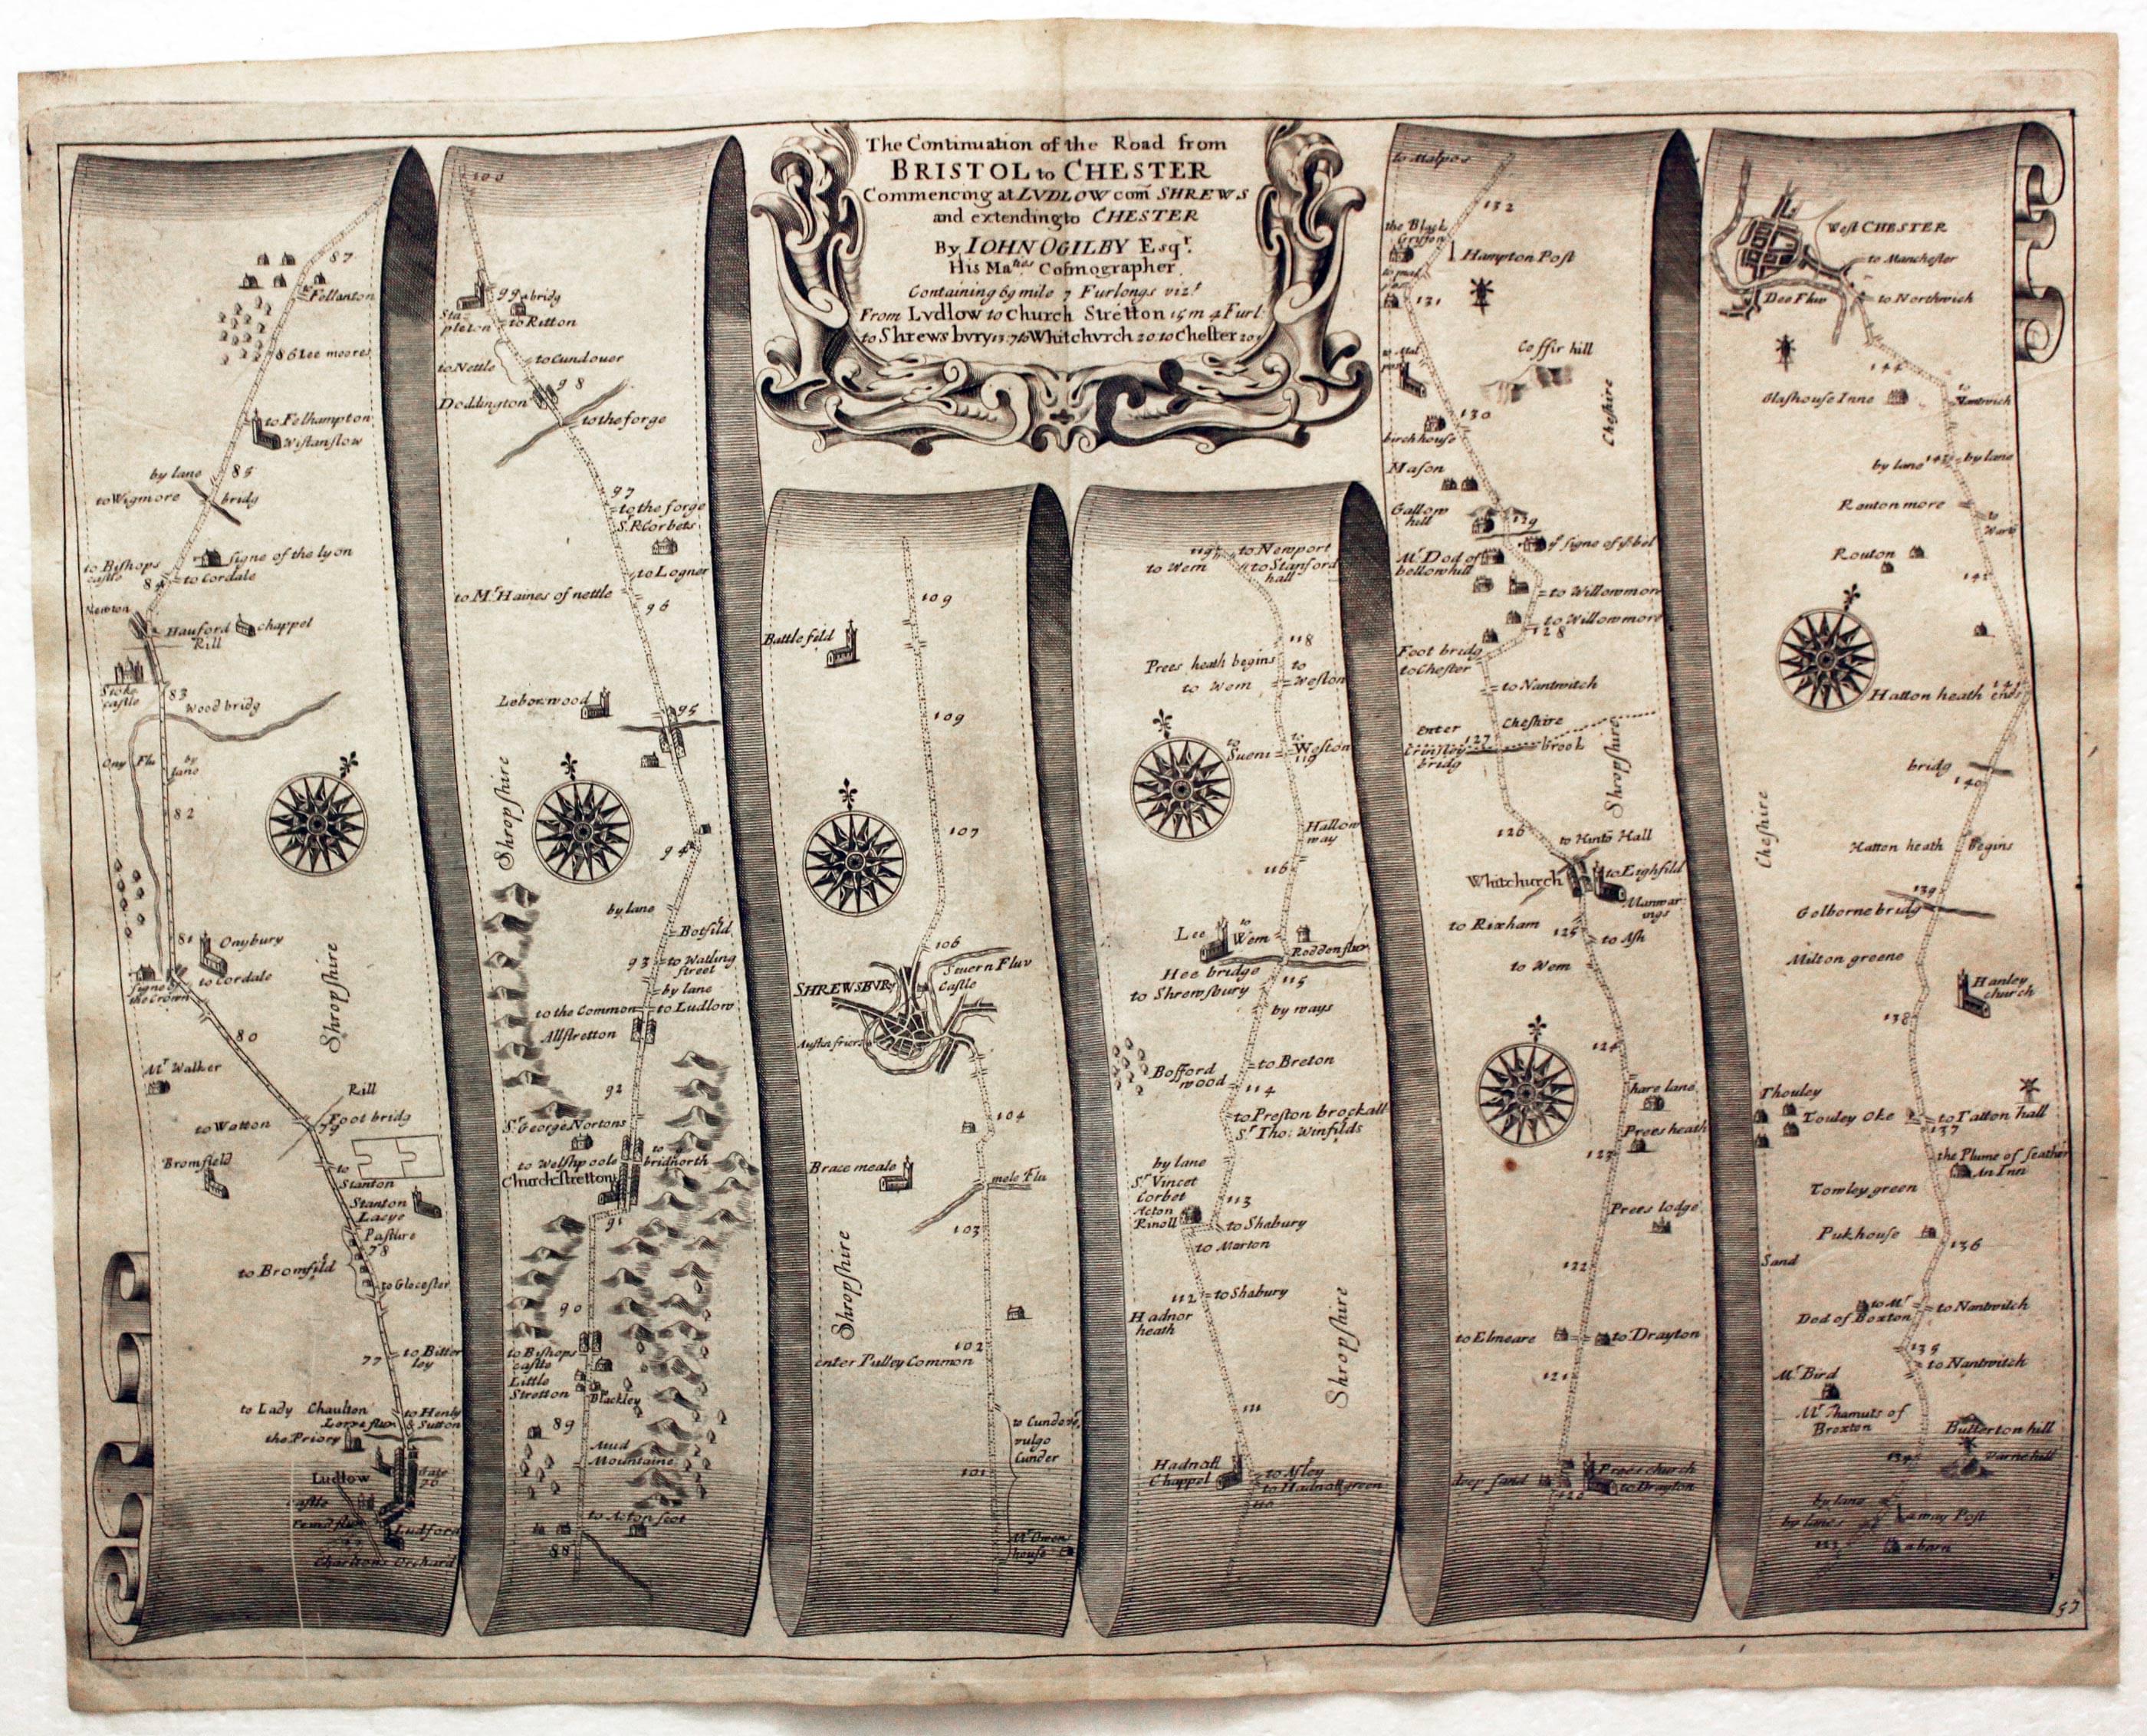 The Continuation of the Road from
BRISTOL to CHESTER
Commencing at LVDLOW com̄ SHREWS
and extending to CHESTER
By IOHN OGILBY Esqr.
His Maties Cosmographer
Containing 69 mile 7 Furlongs vizt
From Lvdlow to Church Stretton 15 m 4 Furl:
to Shrewsbvry 13:7 to Whitchvrch 20 to Chester 20
87
Fellanton
86 Lee moores
to Felhampton
Wistanslow
by lane
85
to Wigmore
bridg
signe of the lyon
to Bishops
castle
84
to Cordale
Newton
Hauford
Rill
chappel
Stoke
castle
83
Wood bridg
Ony Flu
by
lane
82
Shropshire
81
Onybury
to Cordale
signe of
the Crown
80
Mr Walker
Rill
Foot bridg
79
to Watton
Bromfield
to
Stanton
Stanton
Lacye
Pasture
78
to Bromfild
to Glocester
77
to Bitter
ley
to Lady Chaulton
to Henly
& Sutton
the Priory
Ludlow
Gate
76
castle
Ludford
Charltons Orchard
100
99
a bridg
Sta-
pleton
to Ritton
to Cundover
to Nettle
98
Doddington
to the forge
97
to the forge
S.R Corbets
to Logner
to Mr Haines of nettle
96
Lebonwood
95
Shropshire
94
by lane
Botfild
93
to Watling
street
by lane
to the Common
to Ludlow
Allstretton
92
Sr George Nortons
to Welshpoole
to
bridnorth
Churchstretton
91
90
to Bishops
castle
Little
Stretton
Blackley
89
Mud
Mountaine
to Acton scot
88
109
Battle feild
109
107
106
Severn Fluv
Castle
SHREWSBVRY
Austin friers
104
Brace meale
mele Flu
103
Shropshire
102
enter Pulley Common
to Cundover,
vulgo
Cunder
101
Mr Owen
house
119
to Newport
to Wem
to Stanford
hall
118
Prees heath begins
to
Weston
to Wem
to
Sueni
to
Weston
119
Hallow
way
116
Lee
to
Wem
Rodden fluv
Hee bridge
115
to Shrewsbury
by ways
Bofford
wood
to Breton
114
to Preston brockall
Sr Tho: Winfilds
by lane
Sr Vincet
Corbet
Acton
Rinoll
113
to Shabury
to Marton
112
to Shabury
Hadnor
heath
Shropshire
111
Hadnall
Chappel
to Astley
to Hadnall green
110
to Malpos
132
the Black
Gryffon
Hampton Post
131
Coffir hill
Cheshire
130
birchhouse
Mason
Gallow
hill
129
ye signe of ye bel
Mr Dod of
bellowhill
to Willowmore
to Willowmore
128
Foot bridg
to Chester
to Nantwitch
Enter
Cheshire
127
Grinsley
bridg
brook
Shropshire
126
to Kints Hall
Whitchurch
to Eighfild
Manwar-
ings
to Rixham
125
to Ash
to Wem
124
hare lane
Prees heath
123
Prees lodge
122
to Elmeare
to Drayton
121
deep sand
Prees church
120
to Drayton
West CHESTER
to Manchester
Dee Fluv
to Northwich
144
Glashouse Inne
to
Nantwich
by lane
143
by lane
Ranton more
to
Warts
Routon
142
Hatton heath ends
141
bridg
140
Cheshire
Hatton heath begins
139
Golborne bridg
Milton greene
Hanley
church
138
Thouley
Touley Oke
to Tatton hall
137
the Plume of feather
An Inn
Towley green
Pukhouse
136
Sand
to Mr
Dod of Boxton
to Nantwitch
135
to Nantwitch
Mr Bird
Mr Thamuts of
Broxton
Butterton hill
134
Varnehill
by lane
by lanes
a way Post
133
a barn
57